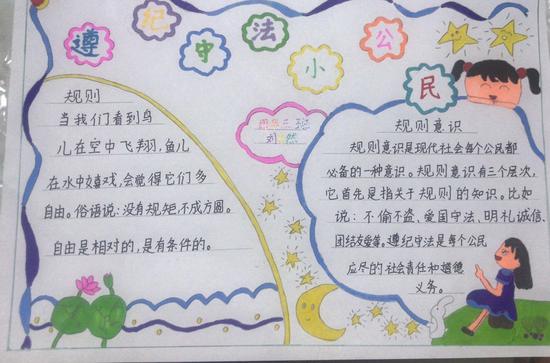 遵纪守法小公民
规则
当我们看到鸟
儿在空中飞翔,鱼儿
在水中嬉戏,会觉得它们多
自由。俗语说:没有规矩,不成方圆。
自由是相对的,是有条件的。
二班
规则意识
规则意识是现代社会每个公民都
必备的一种意识。规则意识有三个层次,
它首先是指关于规则的知识。比如
说:不偷不盗、爱国守法、明礼诚信、
团结友爱等。遵纪守法是每个公民
应尽的社会责任和道德
义务。